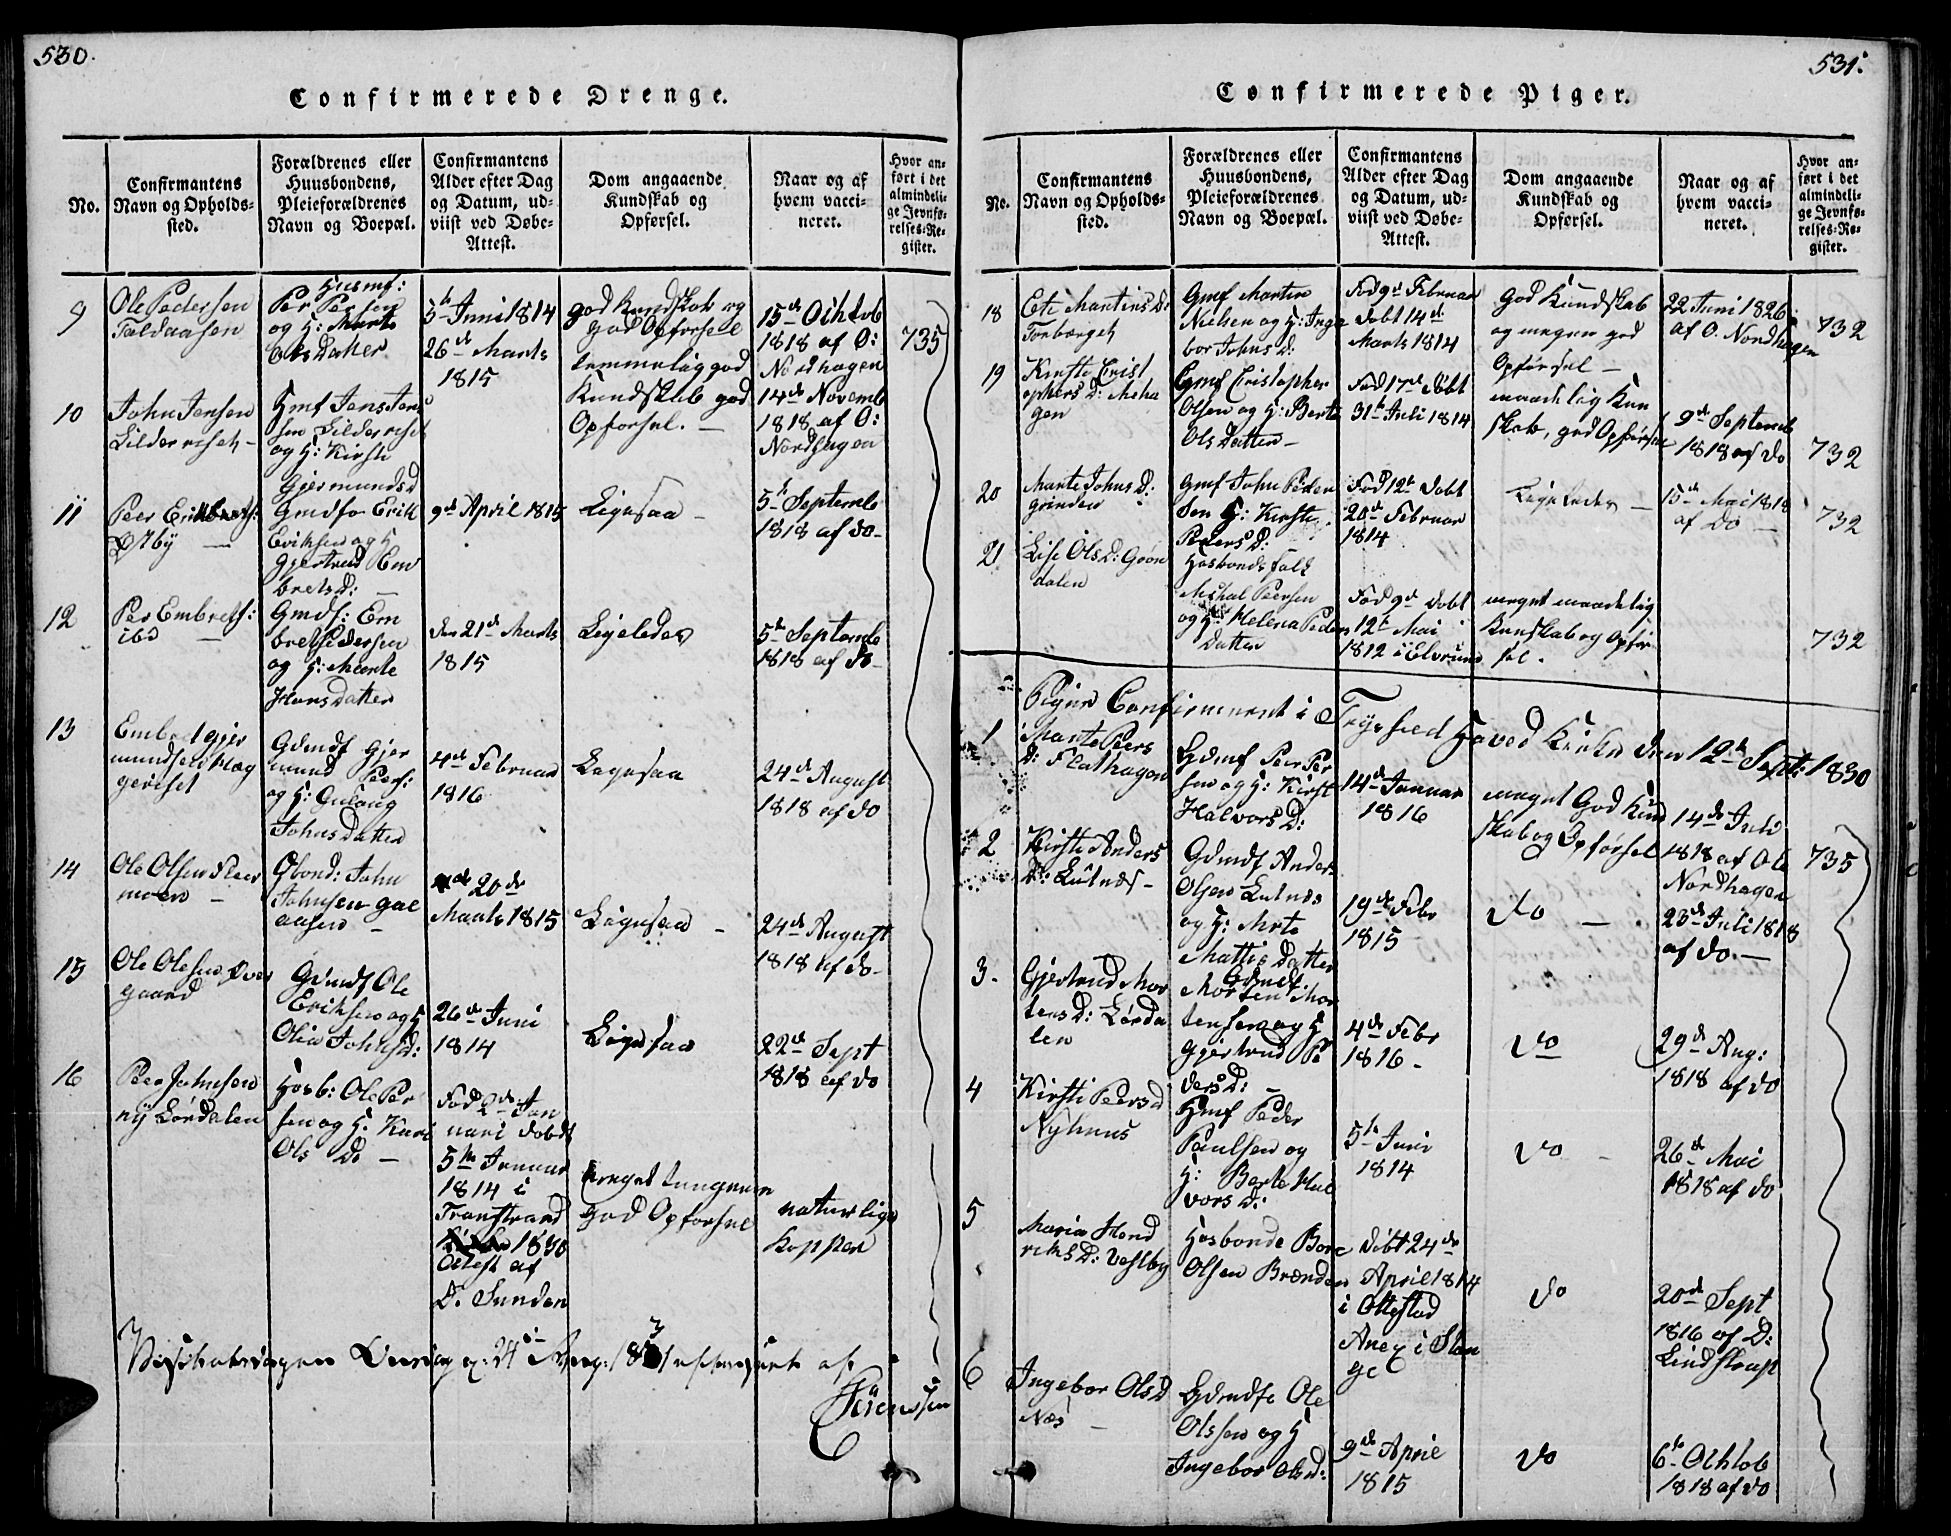 530.
Confirmerede Drenge.
No.
Confirmantens
Navn og Opholds-
sted.
Forældrenes eller
Huusbondens,
Pleieforældrenes
Navn og Boepæl.
Confirmantens
Alder efter Dag
og Datum, ud-
viist ved Døbe-
Attest.
Dom angaaende
Kundskab og
Opførsel.
Naar og af
hvem vacci-
neret.
Hvor an-
ført i det
almindeli-
ge Jevnfø-
relses-Re-
gister.
9
Ole Pedersen
Husmf:
Per Persen
og H: Marte
Olsdatter
5te Juni 1814
26de Marts
1815
god Kundskab og
god Opførsel
15de Ochtob
1818 af O:
Nordhagen
735
10
John Jensen
Lilderiset
Hmf Jens Jen
sen Lilderiset
og H: Kirsti
Gjermundsd
temmelig god
Kundskab god
Opførsel. —
14de Novemb
1818 af O:
Nordhagen
11
Østby —
Gmdfo Erik
Eriksen og H
Gjertrud Em
bretsd: —
9de April 1815
Ligesaa —
5te Septemb
1818 af do —
12
Per Embrets:
ibd —
Gmdf: Em
bret Pedersen
og H: Marte
Hansdatter
den 21de Marts
1815
Ligeledes
5te Septemb
1818 af do —
13
Embret Gjer
mundsen Plag
geriset
Gdmdf Gjer
mund Pers:
og H: Gulaug
Johnsdatter
4de Februar
1816
Ligesaa
24de August
1818 af do
14
Ole Olsen Flaer
moen —
Hbond: John
Johnsen Gal
aasen —
20de
Marts 1815
Ligesaa —
24de August
1818 af do —
15
Ole Olesen Øver
gaard
Gdmdf Ole
Eriksen og H
Olia Johnsd:
26de Juni
1814
Ligesaa
22de Sept
1818 af do
16
Peer Johnsen
ny Lørdalen
Hosb: Ole Per
sen og H: Kari
Ols D: —
Fød 2de Jan
uari døbt
5te Januar
1814 i
Transtrand
1830
Attest af
D. Sunden
meget
god Opførsel
naturlige
Kopper
531.
Confirmerede Piger.
No.
Confirmantens
Navn og Opholds-
sted.
Forældrenes eller
Huusbondens,
Pleieforældrenes
Navn og Boepæl.
Confirmantens
Alder efter Dag
og Datum, ud-
viist ved Døbe-
Attest.
Dom angaaende
Kundskab og
Opførsel.
Naar og af
hvem vacci-
neret.
Hvor an-
ført i det
almindeli-
ge Jevnfø-
relses-Re-
gister.
18
Martins D:
Torberget
Gmf Martin
Nielsen og H: Inge
bor Johns D:
Fød 9de Februar
døbt 14de
Marts 1814
God Kundskab
og megen god
Opførsel —
22 Juni 1826
af O. Nordhagen
732
19
Kirsti Crist
ophers D:
Gmf Cristopher
Olsen og H: Berte
Olsdatter —
Fød 17de Døbt
31te Juli 1814
maadelig Kun
skab, god Opførsel
9de Septemb
1818 af do
732
20
Marte Johns D:
Grinden
Gmf John Peder
sen H: Kirsti
Peders D:
Fød 12te døbt
20de Februar
1814
Ligeledes —
15de Mai 1818
af do —
732
21
Lise Ols D: Grøn
dalen
Hosbondsfolk
Michal Peersen
og H: Helena Peders
Datter
Fød 9de døbt
12te Mai
1812 i Elverum
meget maadelig
Kunskab og Opfør
sel.
732
Piger Confirmeret i Trysild Hoved Kirke den 12te Sept: 1830
1
Marte Peers
D: Flathagen
Gdmf Per Per
sen og H: Kirst
Halvors D:
14de Januar
1816
meget God Kund
skab og Opførsel
14de Juli
1818 af Ole
Nordhagen
735
2
Kirsti Anders
D: Lutnes —
Gdmdf Anders
Olsen Lutnes
og H: Mrte
Mattis Datter
19de Febr
1815
do —
23de Juli 1818
af do. —
3.
Gjertrud Mor
tens D: Lørda
len
Gdmdf
Morten Mor
tensen og H
Gjertrud Pe
ders D: —
4de Febr
1816 —
do
29de Aug:
1818 af do
4
Kirsti Peersd
Nyhuus
Hmf Peder
Paulsen og
H: Berte Hal
vors D:
5te Juni
1814
do —
26de Mai
1818 af do
5
Maria Hend
riks D: Vestby
Hosbonde Bore
Olsen Brænden
Døbt 24de
April 1814
i Ottestad
Anex i Stan
ge
do
20de Sept
1816 af D:
Lindstrup
6
Ingebor Olsd
Næs —
Gdmdfo Ole
Olssen og H
Ingebor Olsd:
9de April
1815
do
6te Ochtob
1818 af do